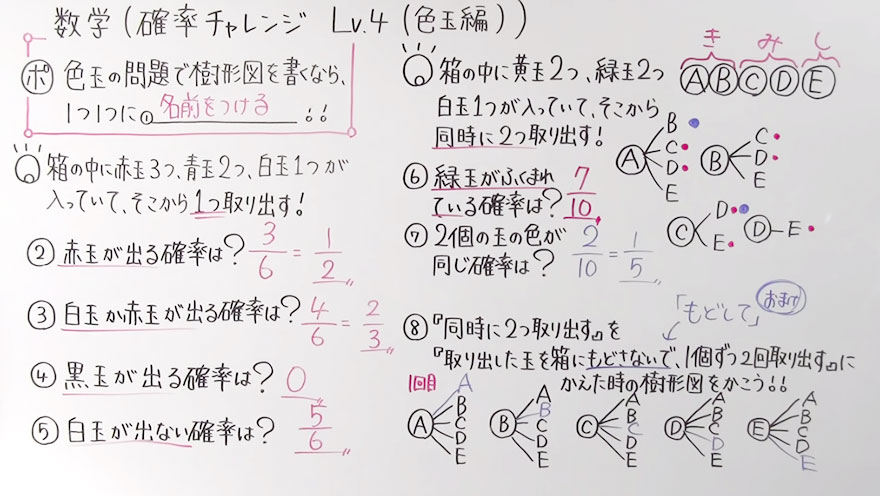 数学(確率チャレンジ Lv.4(色玉編))
ポ 色玉の問題で樹形図を書くなら、
1つ1つに①名前をつける!!
箱の中に赤玉3つ、青玉2つ、白玉1つが
入っていて、そこから1つ取り出す!
②赤玉が出る確率は? 3/6 = 1/2
③白玉か赤玉が出る確率は? 4/6 = 2/3
④黒玉が出る確率は? 0
⑤白玉が出ない確率は? 5/6
箱の中に黄玉2つ、緑玉2つ
白玉1つが入っていて、そこから
同時に2つ取り出す!
き み し
A B C D E
⑥緑玉がふくまれ
ている確率は? 7/10
⑦2個の玉の色が
同じ確率は? 2/10 = 1/5
A B C D E
B C D E
C D E
D E
「もどして」 おまけ
⑧『同時に2つ取り出す』を
『取り出した玉を箱にもどさないで、1個ずつ2回取り出す』に
かえた時の樹形図をかこう!!
1回目
A A B C D E
B A B C D E
C A B C D E
D A B C D E
E A B C D E